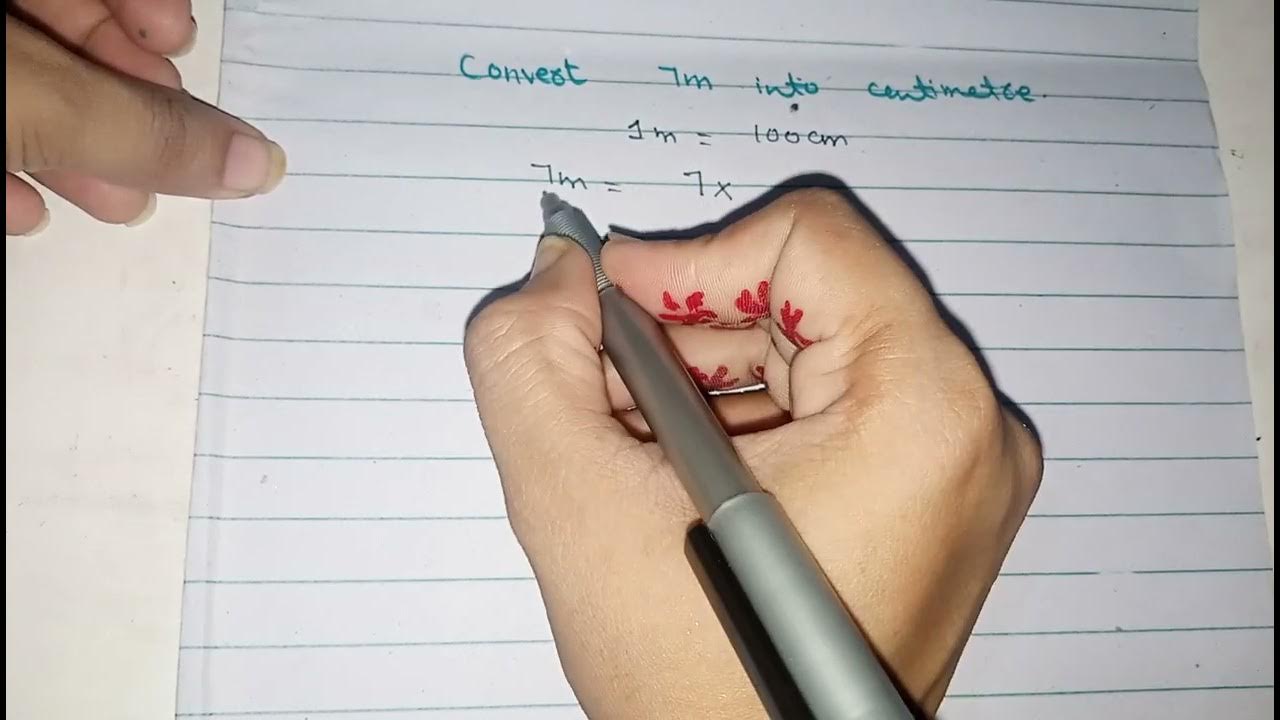 Convert 7m into centimetre.
1m = 100cm
7m = 7x